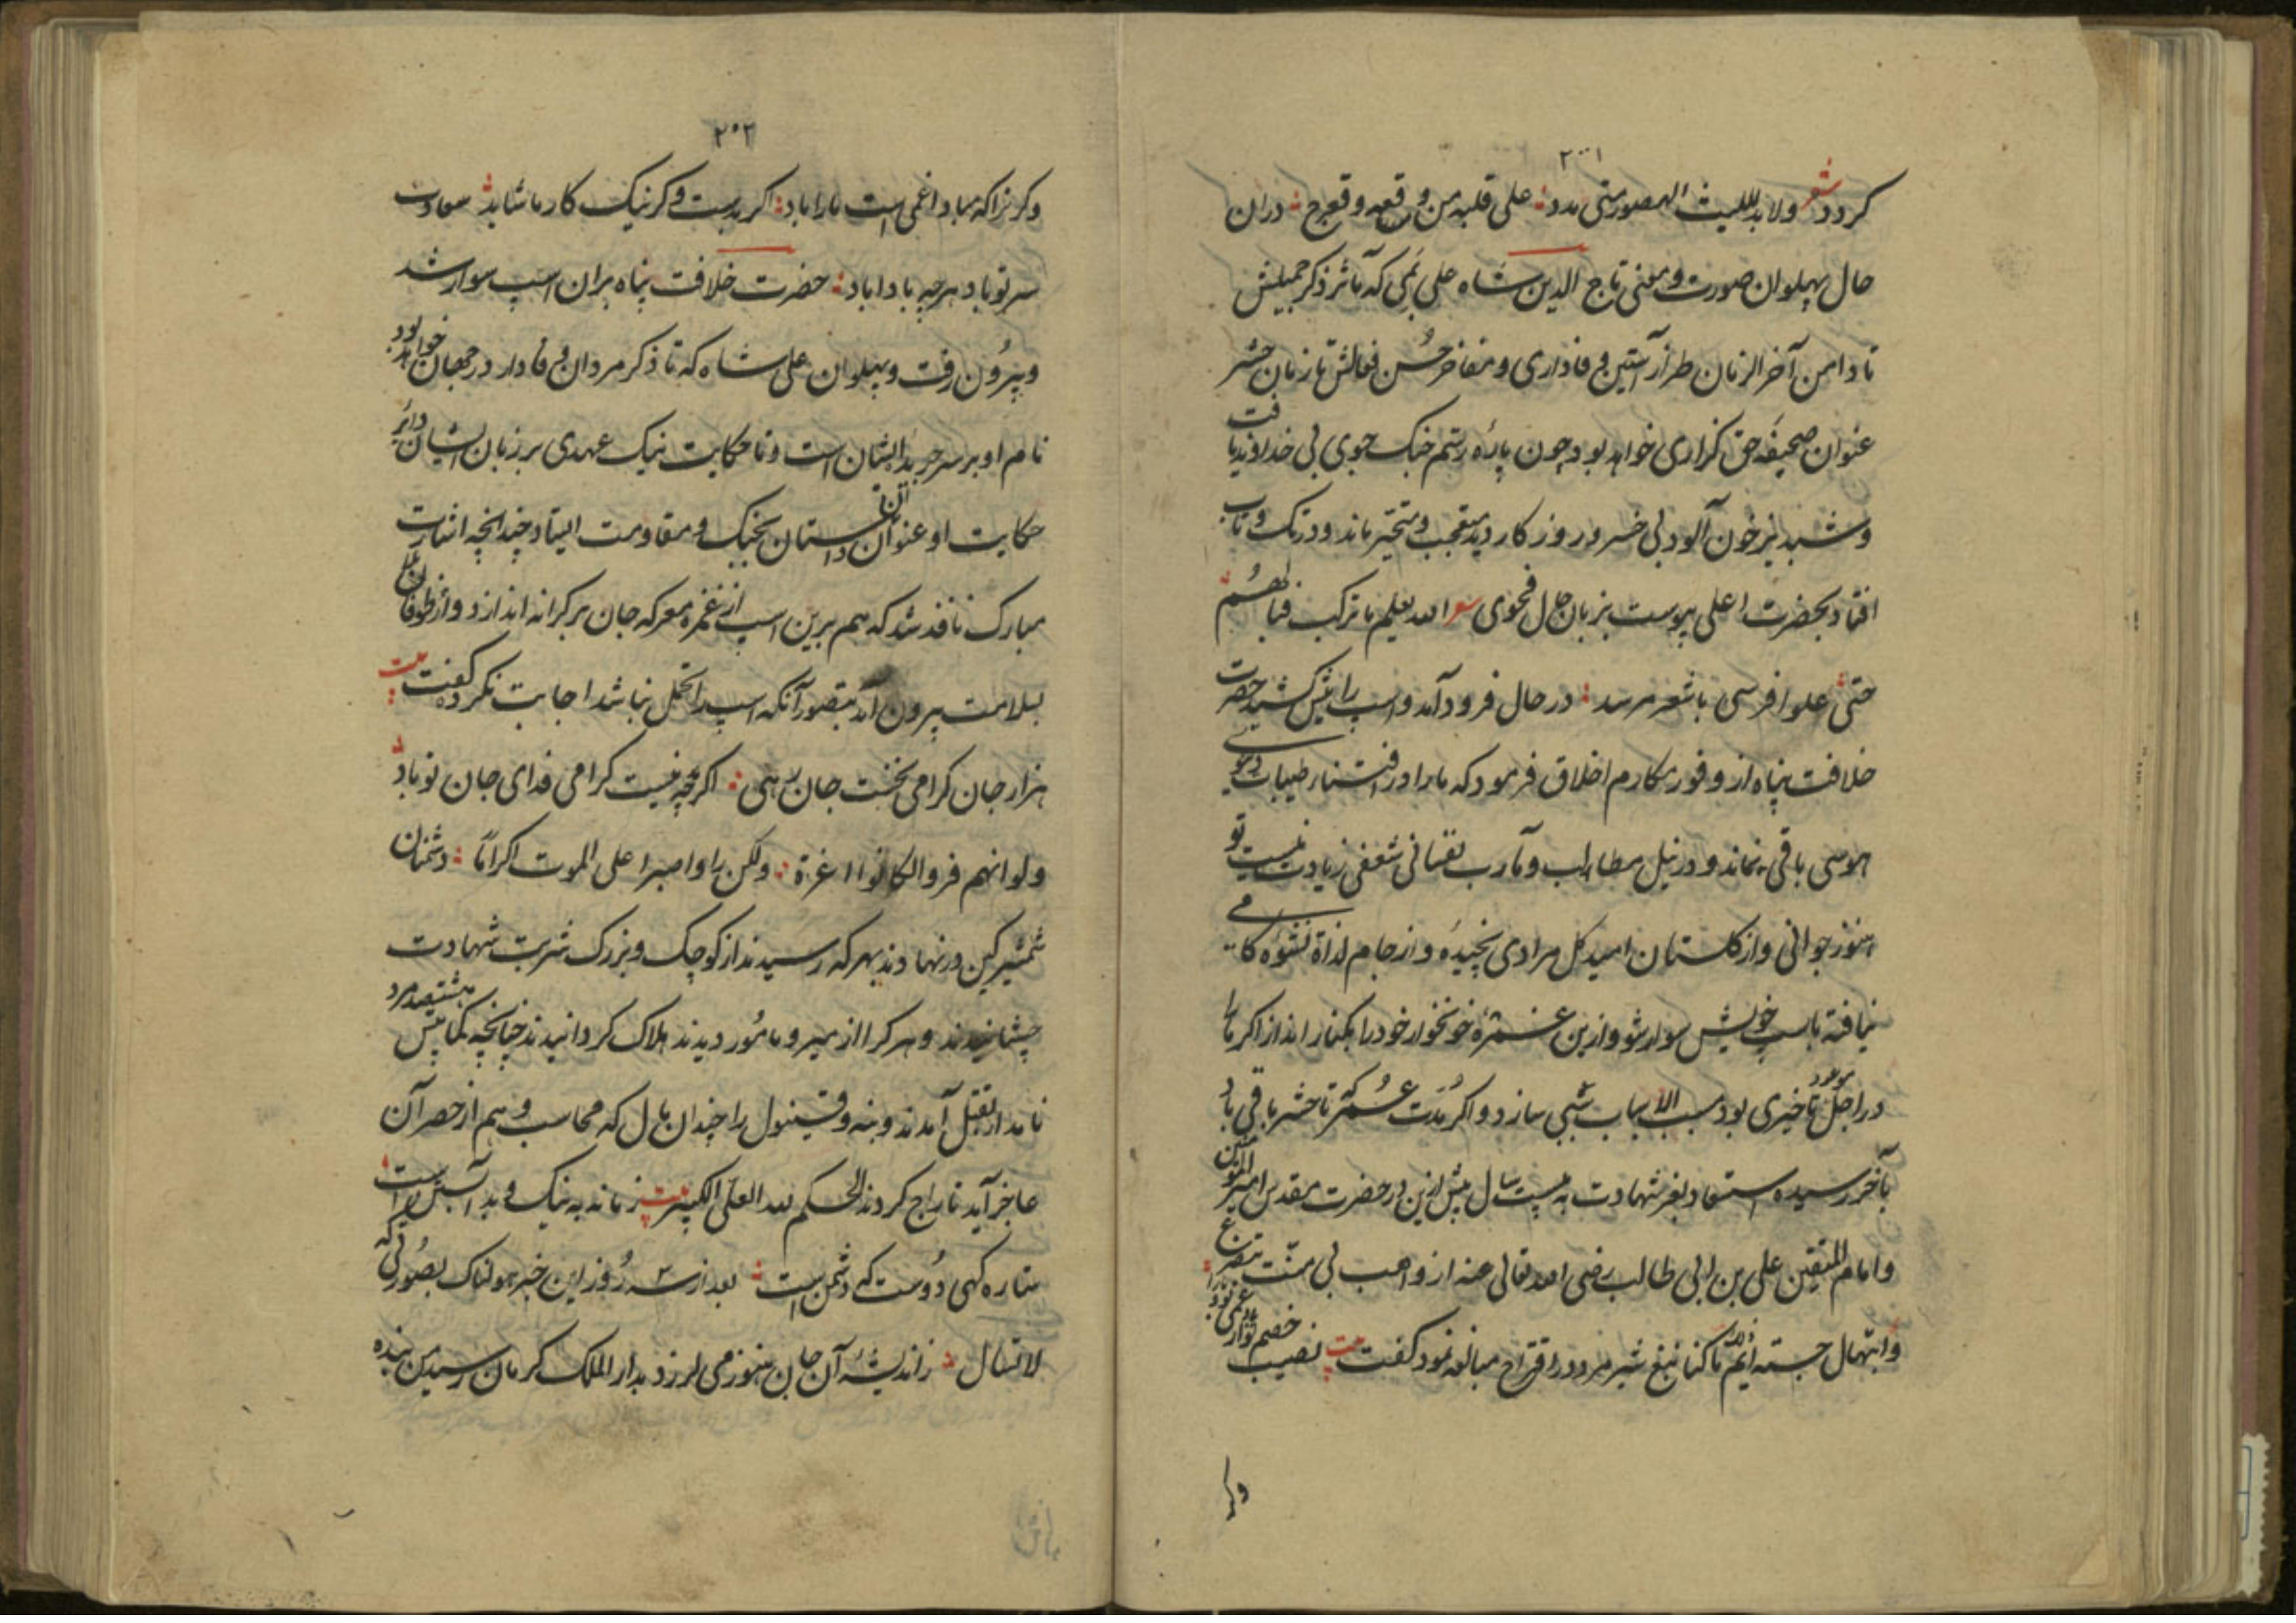 ۲۰۱
گردد شعر ولا بد لللیث الهصور متی عدد علی قلبه من وقعه وقع رح دران
حال پهلوان صورت و معنی تاج الدین شاه علی بمی که مآثر ذکر جمیلش
تا دامن آخر الزمان طراز آستین وفاداری و مفاخر حسن فعالش تا زمان حشر
عنوان صحیفه حق گزاری خواهد بود چون باره رستم جنگ جوی بی خداوند یافت
و شبدیز خون آلود بی خسرو روزگار دید متعجب و متحیر ماند و در تک و تاب
افتاد بحضرت اعلی پیوست بزبان حال فحوی شعر الله یعلم ما ترکت قتالهم
حتی علوا فرسی باشقر مزبد در حال فرود آمد و اسب را پیش کشید حضرت
خلافت پناه از وفور مکارم اخلاق فرمود که ما را در اقتناء طیبات دنیوی
هوسی باقی نماند و در نیل مطالب و مآرب نفسانی شعفی زیادت نیست تو
هنوز جوانی و از گلستان امید گل مرادی نچیده و از جام لذاة نشوه کامی
نیافته باسب خویش سوار شو و ازین غمره خونخوار خود را بکنار انداز اگر ما را
در اجل موعود تاخیری بود مسبب الاسباب سببی سازد و اگر مدت عمر تا حشر باقی باد
بآخر رسیده استسعاد بعز شهادت به بیست سال پیش ازین در حضرت مقدس امیر المؤمنین
و امام المتقین علی بن ابی طالب رضی الله تعالی عنه از واهب بی منت بتضرع
و ابتهال جسته ایم تا کنا تبغ شیر مرد در اقتراح مبالغه نمود گفت بیت نصیب خصم تو از
وگر
۲۰۲
وگر تراکه مباد اغمی است ما را باد اگر بدست و گر نیک کار ما شاید سعادت
سر تو باد هرچه بادا باد حضرت خلافت پناه بران اسب سوار شد
و بیرون رفت و پهلوان علی شاه که تا ذکر مردان وفادار در جهان خواهد بود
نام او بر سر جریده ایشان است و تا حکایت نیک عهدی بر زبان ایشان دایر
حکایت او عنوان آن داستان بجنگ و مقاومت ایستاد چندانچه اشارت
مبارک نافذ شد که هم برین اسب از غمره معرکه جان بر کرانه اندازد و از طوفان بلا
بسلامت بیرون آید بتصور آنکه اسب را تحمل نباشد اجابت نکرد گفت بیت
هزار جان گرامی بخست جان رهی اگرچه نیست گرامی فدای جان تو باد
ولو انهم فروا لکانوا اعزة ولکن راوا صبرا علی الموت اکراما دشمنان
شمشیر کین در نهادند بهر که رسیدند از کوچک و بزرگ شربت شهادت
چشانیدند و هر کرا از میر و مامور دیدند هلاک گردانیدند چنانچه کمابیش هشتصد مرد
نامدار بقتل آمدند و بنه و قیتول را چندان مال که محاسب وهم از حصر آن
عاجز آید تاراج کردند الحکم لله العلی الکبیر بیت زمانه به نیک و بد آبستن است
ستاره گهی دوست گه دشمن است بعد از سه روز این خبر هولناک بصورتی که
لا تسال ز اندیشه آن جان هنوز می لرزد بدار الملک کرمان رسید من بنده